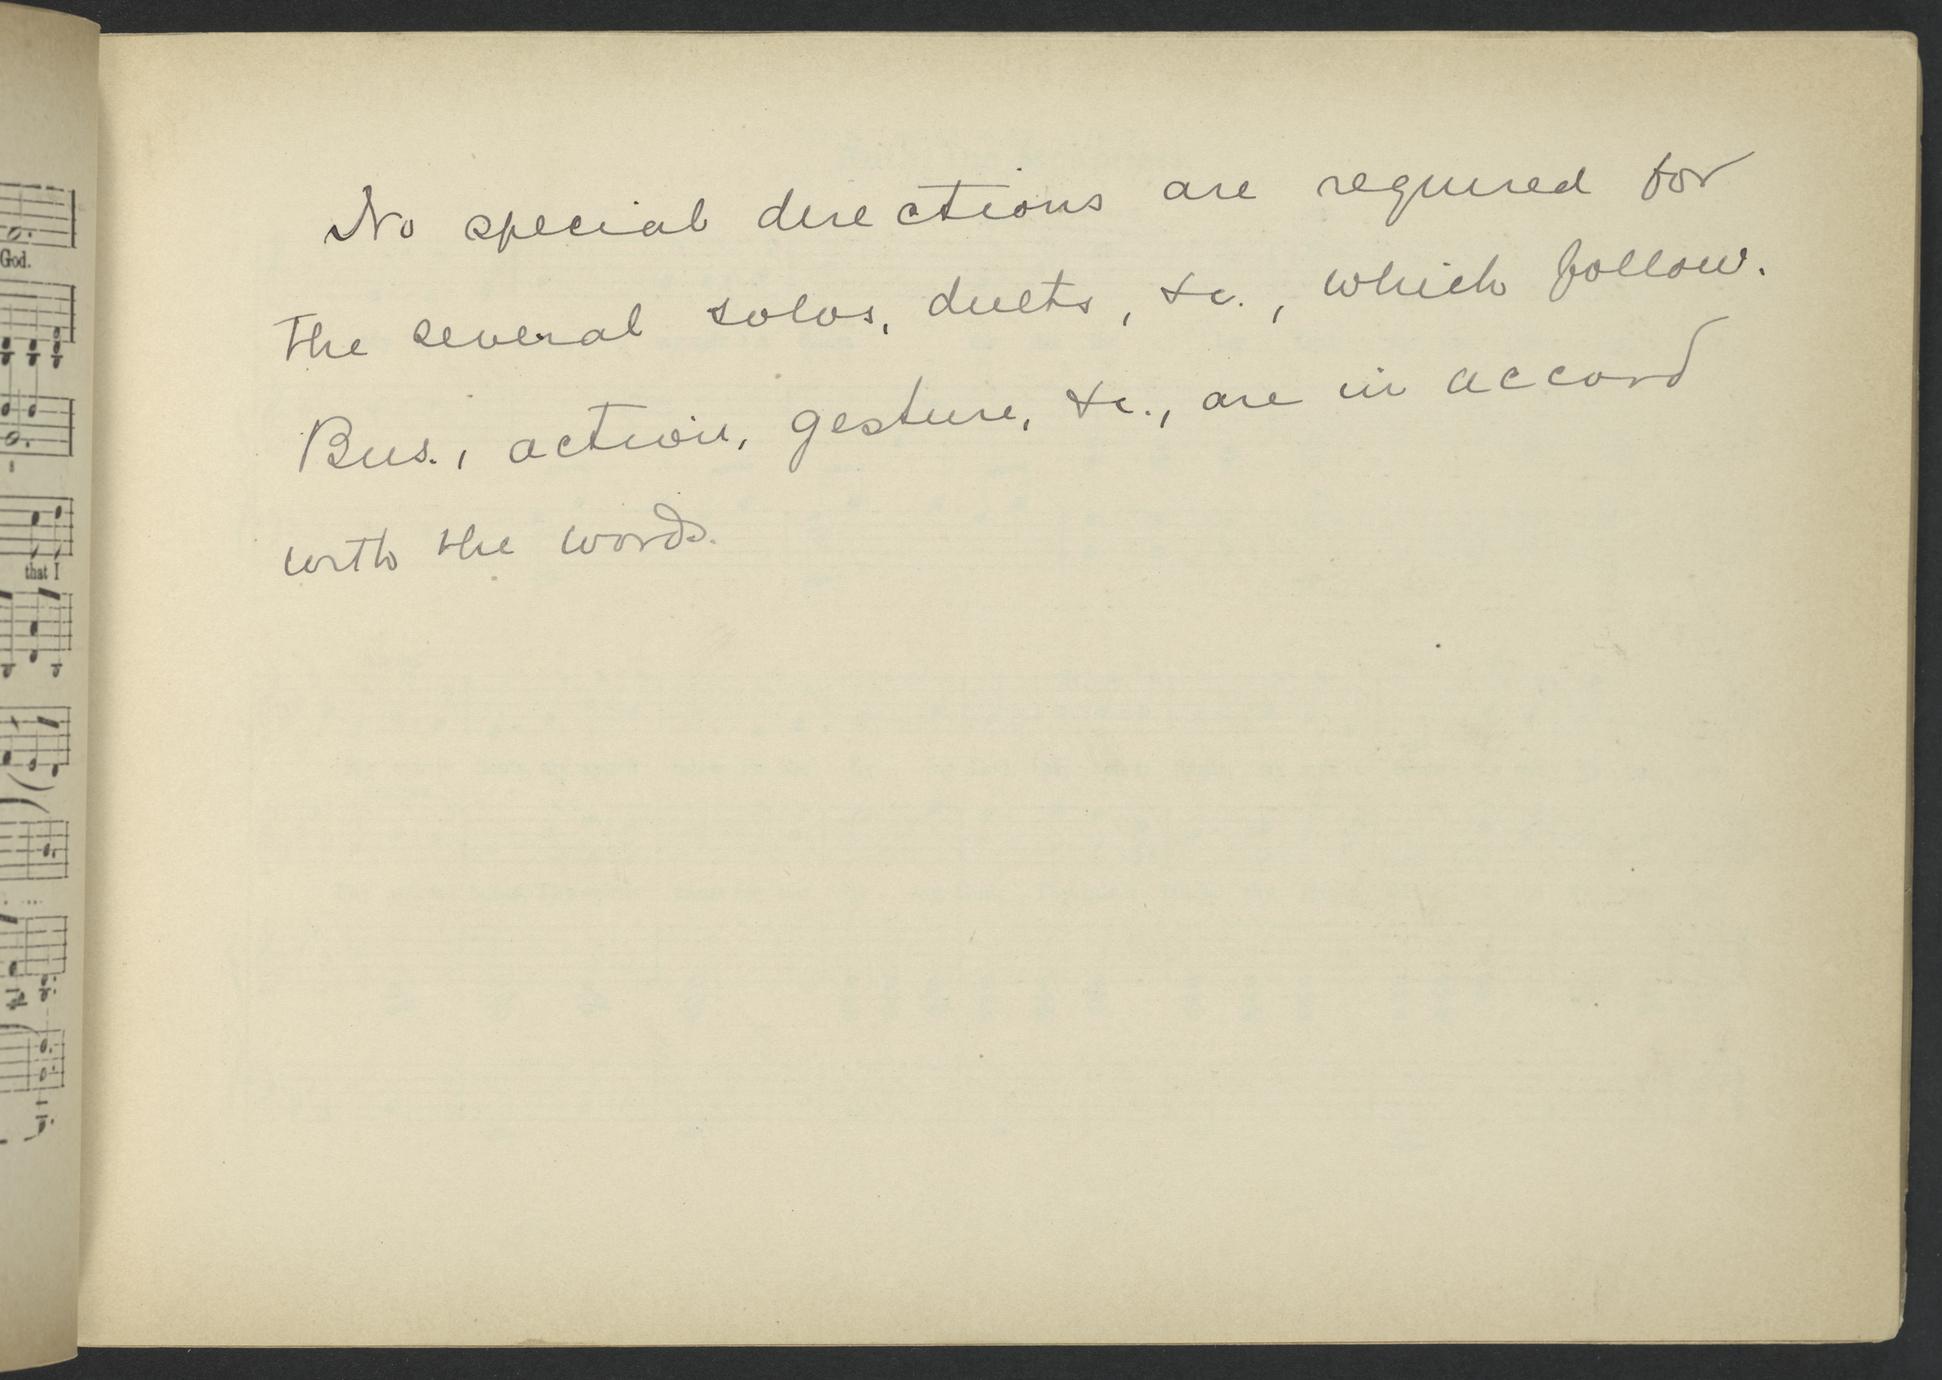 No special directions are required for
the several solos, duets, &c., which follow.
Bus., action, gesture, &c., are in accord
with the words.
God.
that I